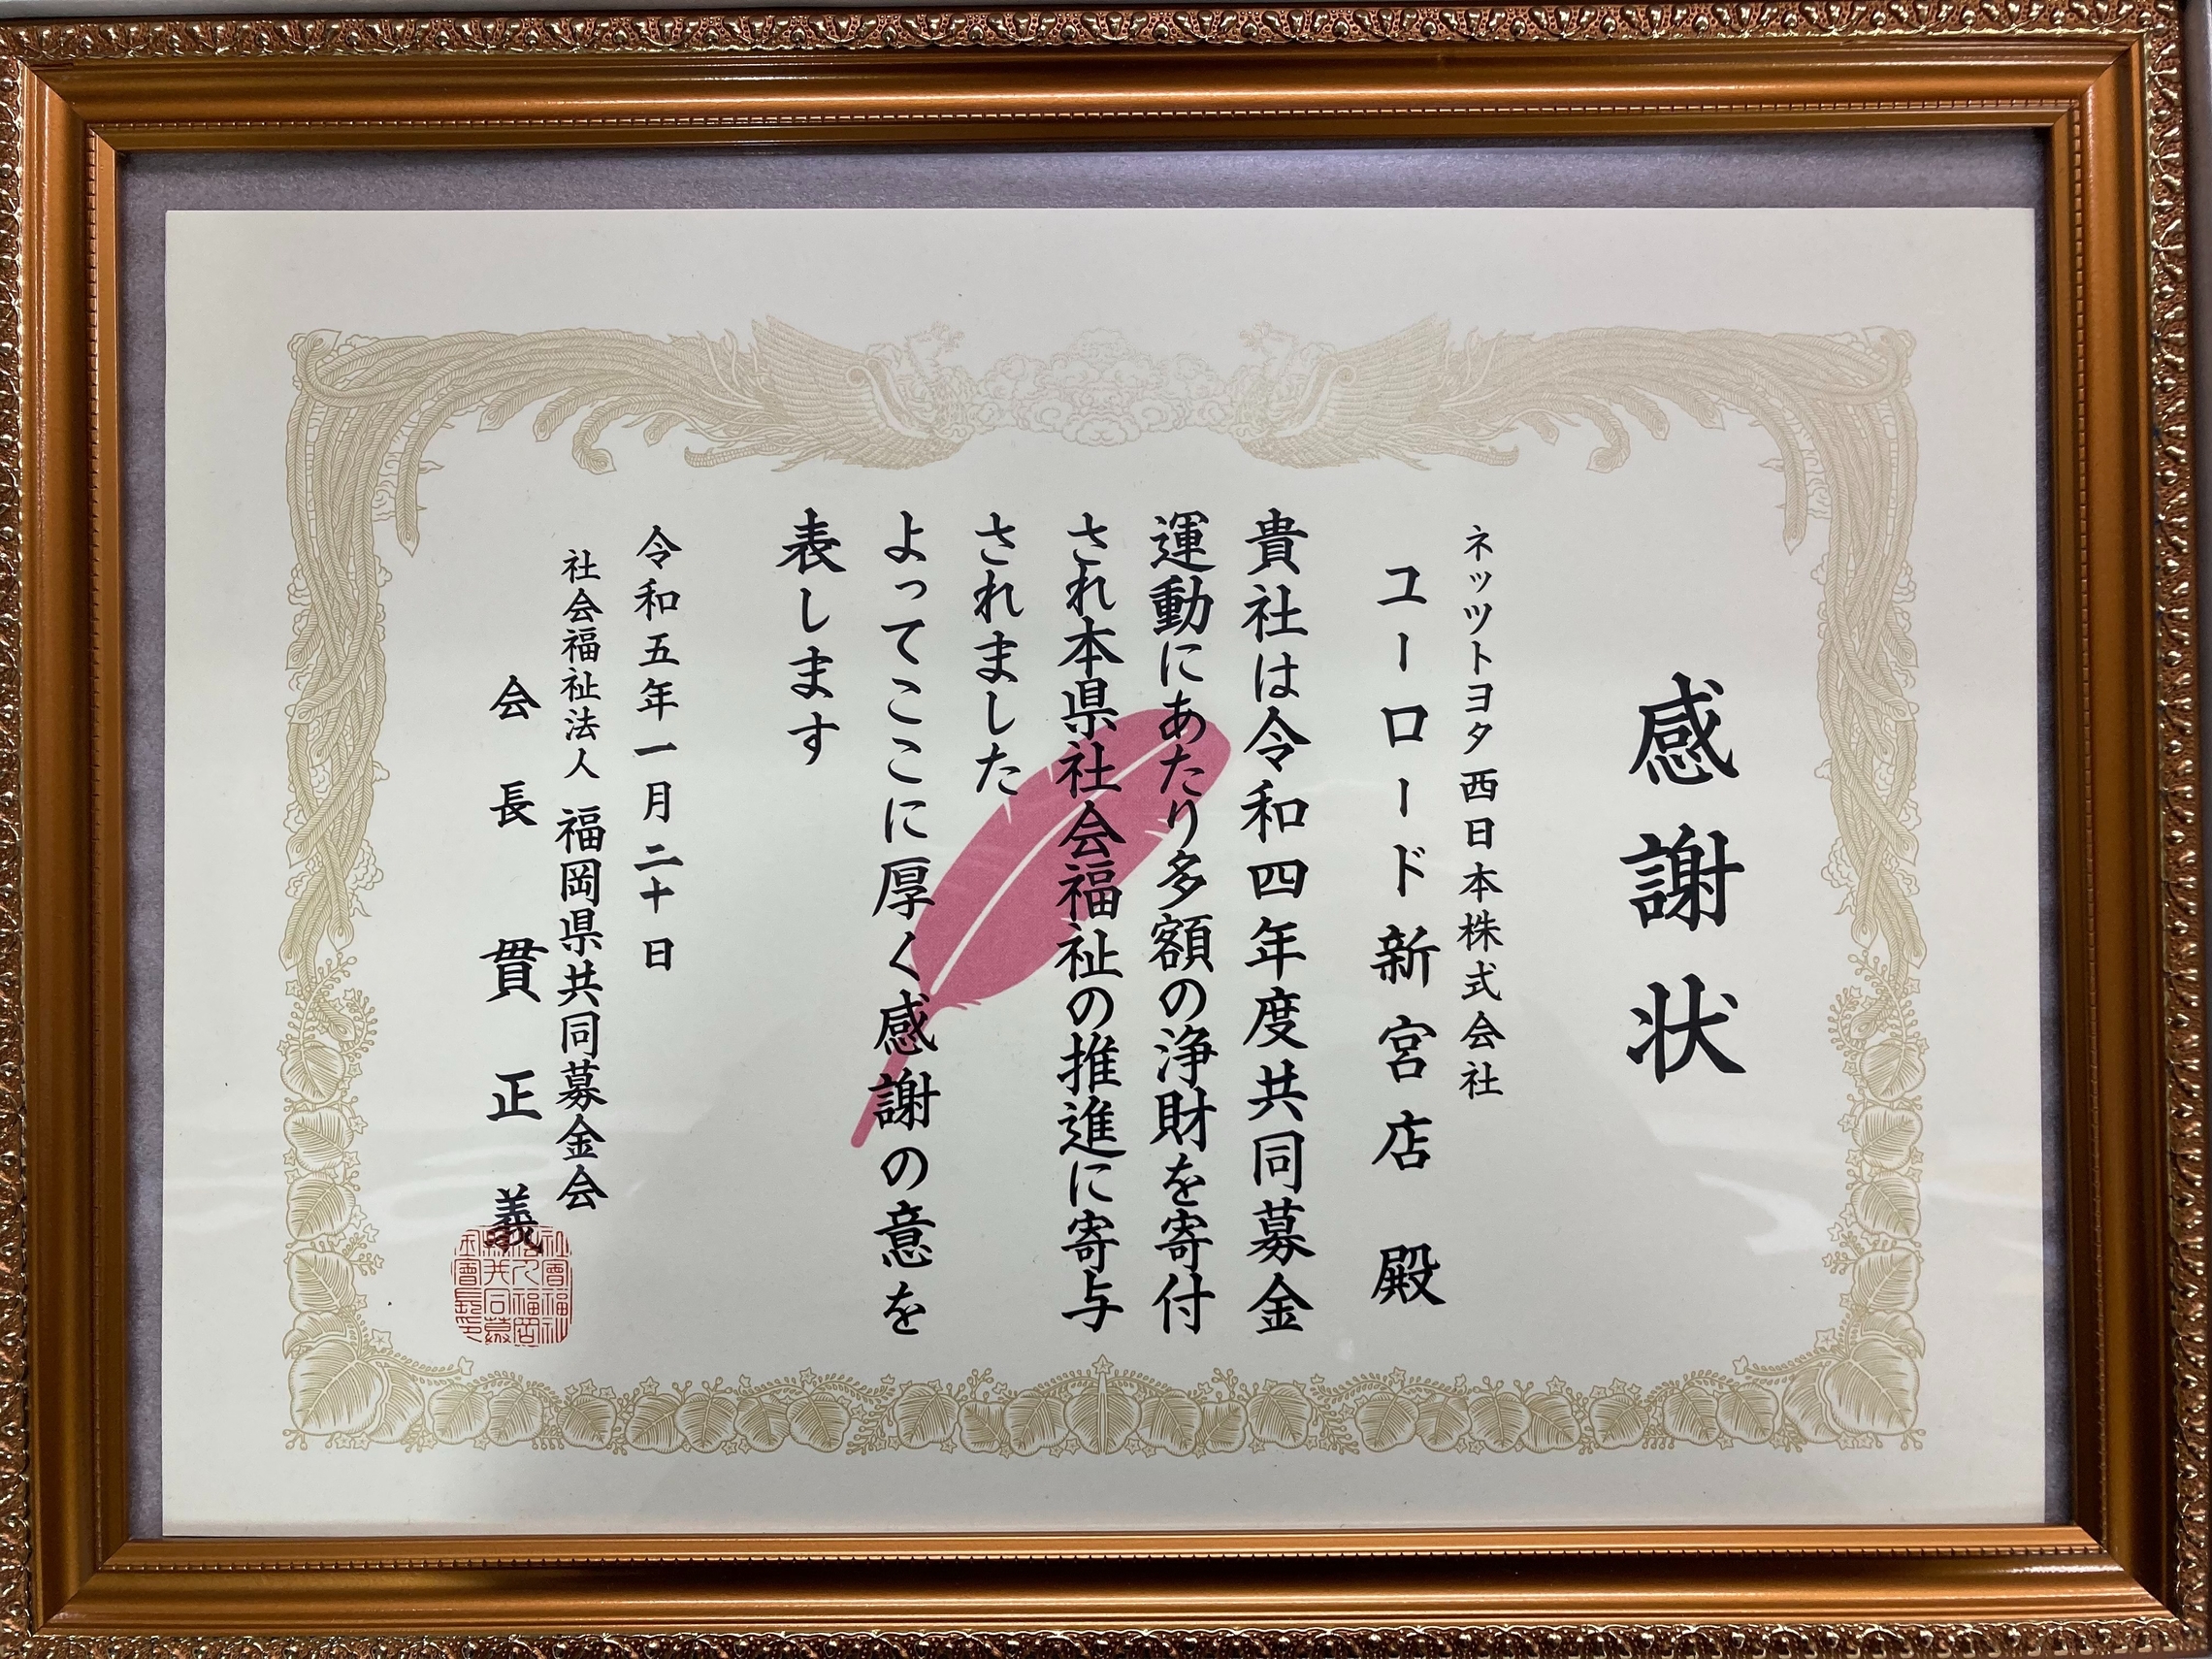 感謝状
ネッツトヨタ西日本株式会社
ユーロード新宮店 殿
貴社は令和四年度共同募金
運動にあたり多額の浄財を寄付
され本県社会福祉の推進に寄与
されました
よってここに厚く感謝の意を
表します
令和五年一月二十日
社会福祉法人 福岡県共同募金会
会長 貫 正義